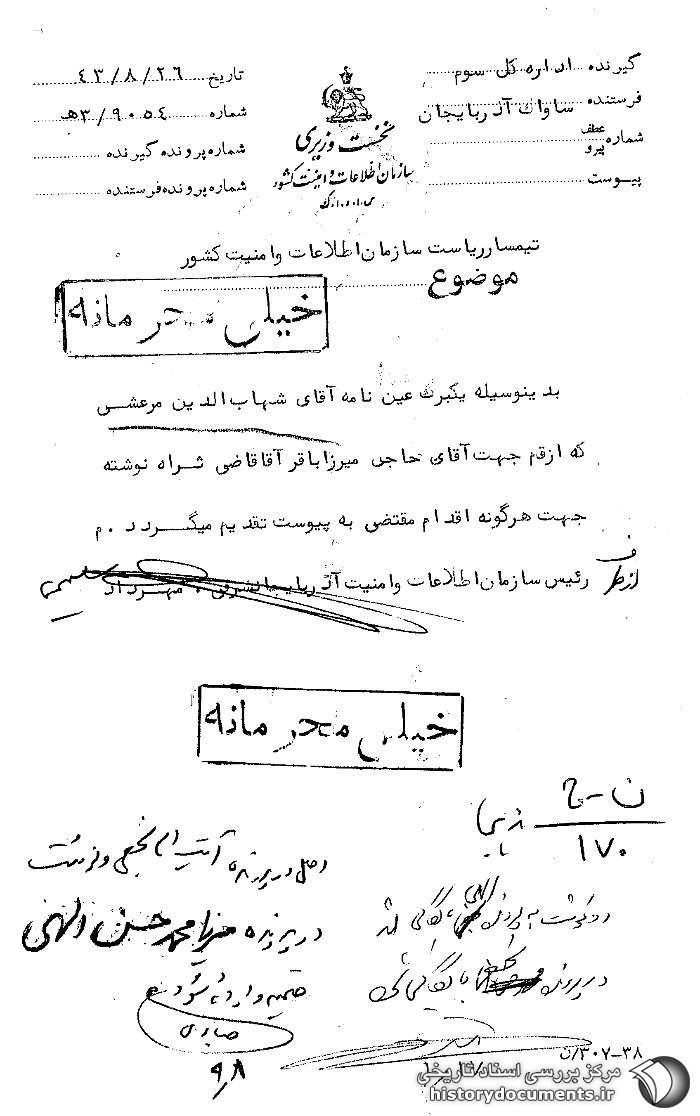 گیرنده اداره کل سوم
فرستنده ساواک آذربایجان
شماره عطف پیرو
پیوست
نخست وزیری
سازمان اطلاعات و امنیت کشور
س.ا.و.ا.ک
تاریخ ۴۳/۸/۲۶
شماره ۳/۹۰۵۴ﻫ
شماره پرونده گیرنده
شماره پرونده فرستنده
تیمسار ریاست سازمان اطلاعات و امنیت کشور
موضوع
خیلی محرمانه
بدینوسیله یکبرگ عین نامه آقای شهاب الدین مرعشی
که از قم جهت آقای حاجی میرزا باقر آقا قاضی
نوشته
جهت هرگونه اقدام مقتضی به پیوست تقدیم میگردد . م
از طرف رئیس سازمان اطلاعات و امنیت آذربایجانشرقی . مهرداد
خیلی محرمانه
ن-ح
۱۷۰
اصل در پرونده آیت اله نجفی
در پرونده میرزا محمد حسن الهی
ضمیمه و ارائه شود
صابری
۹٫۸
رونوشت به پرونده
در پرونده
بایگانی
۳۰۷-۳۸/ن
مرکز بررسی اسناد تاریخی
historydocuments.ir